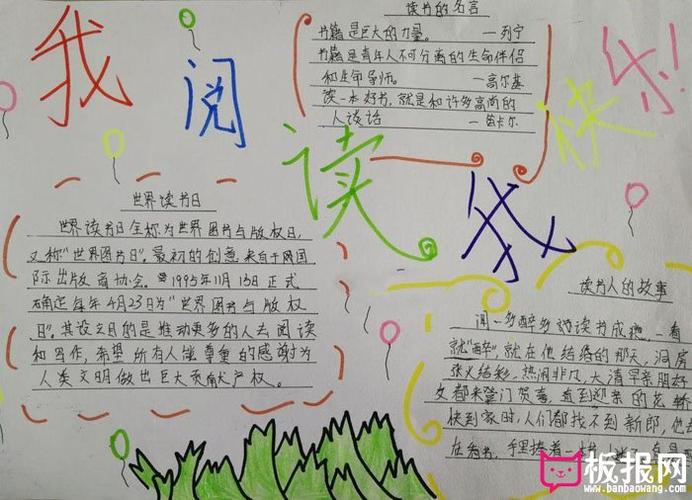 我阅读我快乐!
读书的名言
书籍是巨大的力量。 —列宁
书籍是青年人不可分离的生命伴侣
和生命导师。 —高尔基
读一本好书,就是和许多高尚的
人谈话 —笛卡尔
世界读书日
世界读书日全称为世界图书与版权日,
又称“世界图书日”。最初的创意来自于两国
际出版商协会。1995年11月15日正式
确定每年4月23日为“世界图书与版权
日”。其设立目的是推动更多的人去阅读
和写作,希望所有人能尊重的感谢为
人类文明做出巨大贡献产权。
读书人的故事
闻一多醉多 读书成瘾,一看
就“醉”,就在他结婚的那天,洞房
张灯结彩,热闹非凡,大清早亲朋好
友都来登门贺喜,直到迎亲的花轿
快到家时,人们都找不到新郎,
在看书,手里捧着一本
板报网
www.banbaowang.com